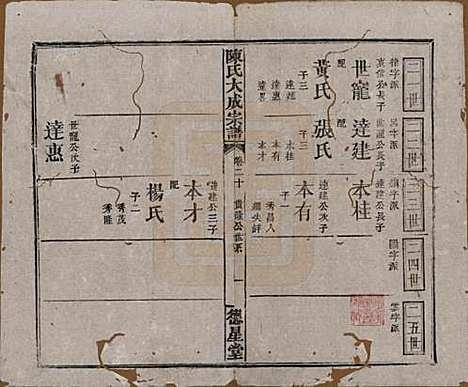 二一世
二二世
二三世
二四世
二五世
字派
京信公長子
世寵
配
黃氏
子三
達建
達惠
字派
世寵公長子
達建
配
張氏
子三
本桂
本有
本才
字派
達建公長子
本桂
達建公次子
本有
子一
秀昌
字派
字派
陳氏大成宗譜
卷二十
一
德星堂
達建公三子
本才
配
楊氏
子二
秀茂
秀隆
世寵公次子
達惠